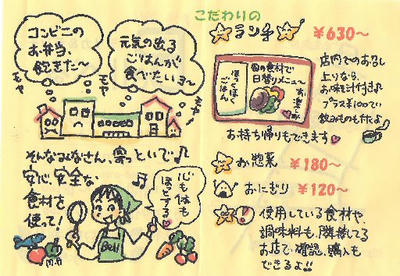 こだわりの
コンビニの
お弁当、
飽きた〜
元気の出る
ごはんが
食べたいよ〜
モヤ
モヤ
モヤ
モヤ
そんなみなさん、
といで♪
安心、安全な
食材を
使って!
心も体も
ほっとする
ランチ ¥630〜
国の食材で
日替りメニュー
ほくほく
ごはん
お惣菜
店内でのお召し
上りなら、
お味噌汁付♪
プラス¥100で
飲みものも付よ♪
お持ち帰りもできます
お惣菜 ¥180〜
おにぎり ¥120〜
使用している食材や
調味料も、隣接してる
お店で確認、購入も
できるよ!!